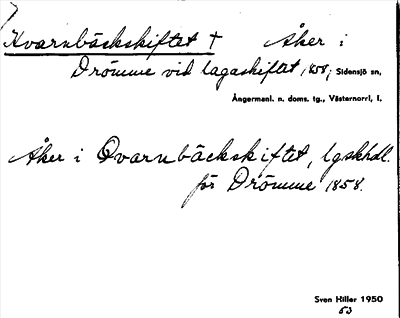 Kvarnbäckskiftet † Åker i
Drömme vid lagaskiftet 1858; Sidensjö sn,
Ångermanl. n. doms. tg., Västernorrl. l.
Åker i Qvarnbäckskiftet, lgskhdl.
för Drömme 1858.
Sven Hiller 1950
53